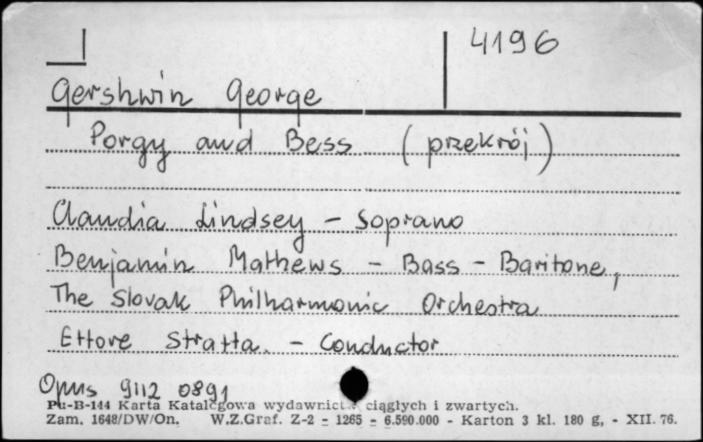 4196
Gershwin George
Porgy and Bess (przekrój)
Claudia Lindsey - Soprano
Benjamin Mathews - Bass - Baritone,
The Slovak Philharmonic Orchestra
Ettore Stratta. - Conductor
Opus 9112 0891
Pu-B-144 Karta Katalogowa wydawnictw ciągłych i zwartych.
Zam. 1648/DW/On. W.Z.Graf. Z-2 - 1265 - 6.590.000 - Karton 3 kl. 180 g, - XII. 76.